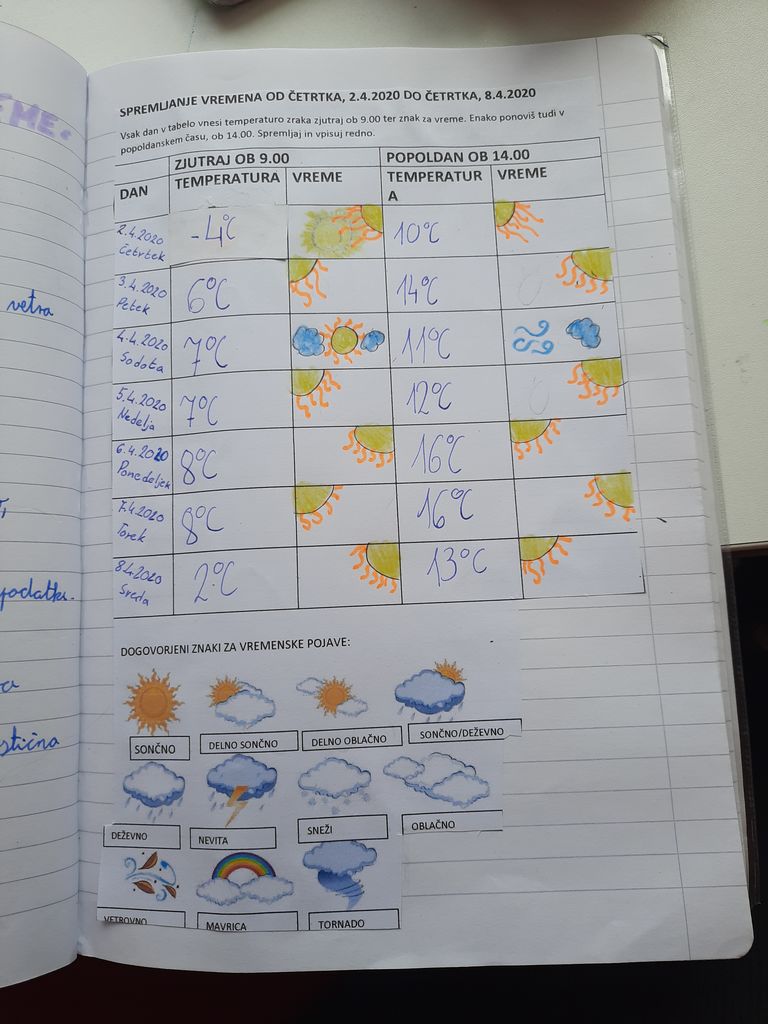 EME.
vetra
podatki.
stična
SPREMLJANJE VREMENA OD ČETRTKA, 2.4.2020 DO ČETRTKA, 8.4.2020
Vsak dan v tabelo vnesi temperaturo zraka zjutraj ob 9.00 ter znak za vreme. Enako ponoviš tudi v
popoldanskem času, ob 14.00. Spremljaj in vpisuj redno.
ZJUTRAJ OB 9.00 POPOLDAN OB 14.00
DAN TEMPERATURA VREME TEMPERATUR VREME
A
2.4.2020 -4°C 10°C
Četrtek
3.4.2020 6°C 14°C
Petek
4.4.2020 7°C 11°C
Sobota
5.4.2020 7°C 12°C
Nedelja
6.4.2020 8°C 16°C
Ponedeljek
7.4.2020 8°C 16°C
Torek
8.4.2020 2°C 13°C
Sreda
DOGOVORJENI ZNAKI ZA VREMENSKE POJAVE:
SONČNO DELNO SONČNO DELNO OBLAČNO SONČNO/DEŽEVNO
DEŽEVNO NEVITA SNEŽI OBLAČNO
VETROVNO MAVRICA TORNADO